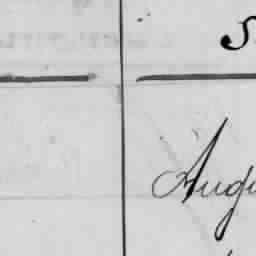 S
Augu